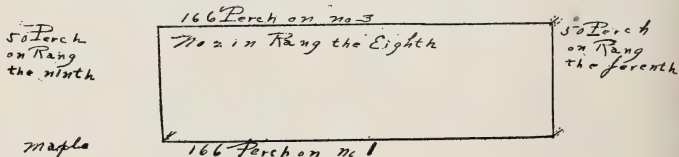 166 Perch on no 3
50 Perch
on Rang
the ninth
No 2 in Rang the Eighth
50 Perch
on Rang
the seventh
maple
166 Perch on no 1